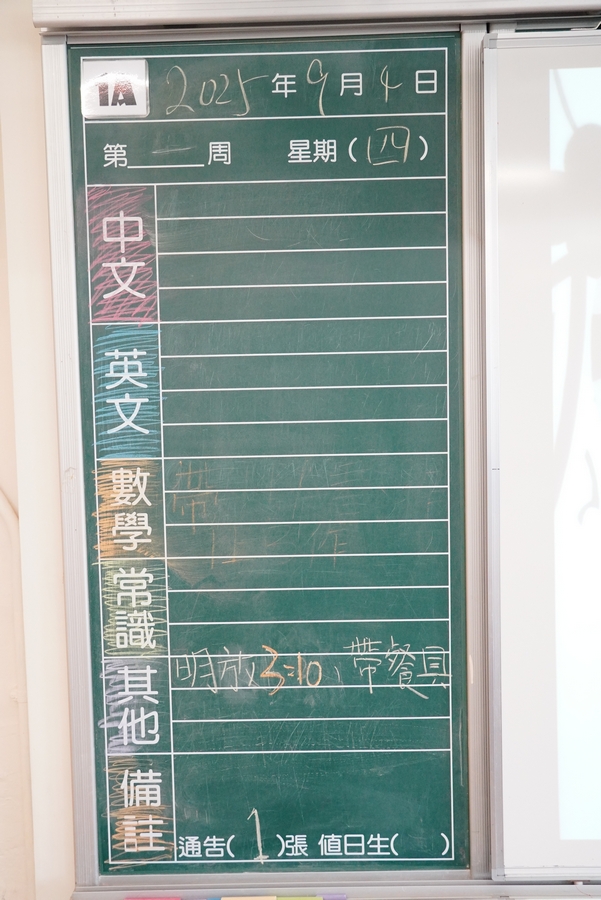 1A 2025年9月4日
第一周 星期(四)
中文
英文
數學
常識
其他 明放3:10、帶餐具
備註
通告(1)張 值日生( )